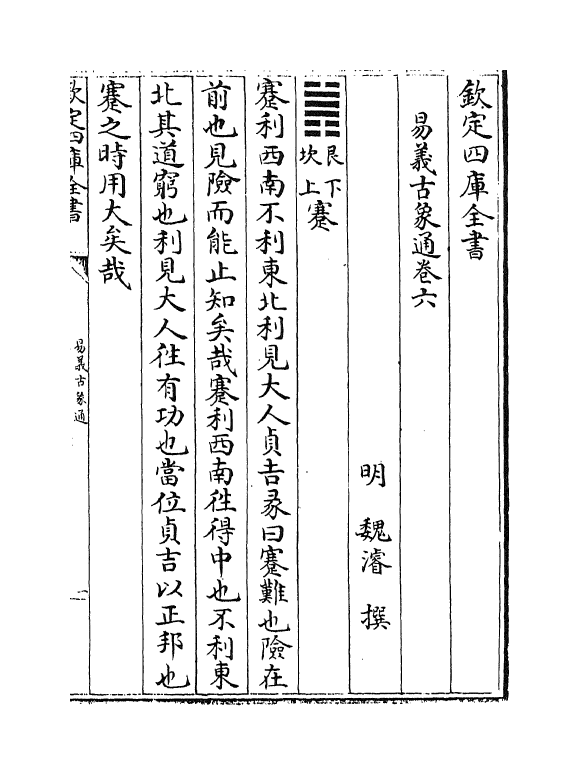 欽定四庫全書
易義古象通卷六
明 魏濬 撰
䷦艮下坎上蹇
蹇利西南不利東北利見大人貞吉彖曰蹇難也險在
前也見險而能止知矣哉蹇利西南徃得中也不利東
北其道窮也利見大人徃有功也當位貞吉以正邦也
蹇之時用大矣哉
欽定四庫全書
易義古象通